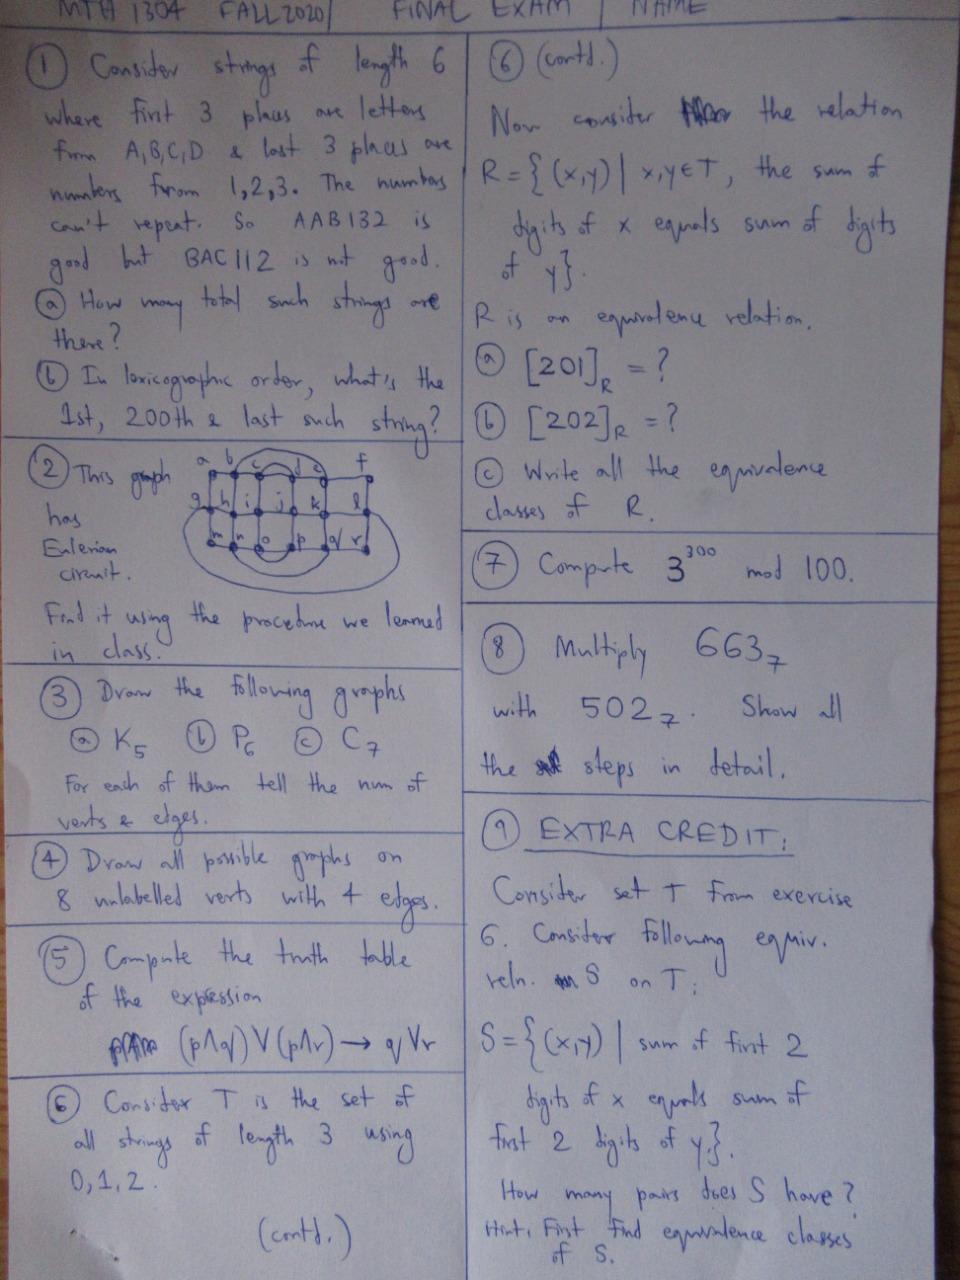 MTH 1304 FALL 2020 | FINAL EXAM | NAME
① Consider strings of length 6
where first 3 places are letters
from A,B,C,D & last 3 places are
numbers from 1,2,3. The numbers
can't repeat. So AAB132 is
good but BAC112 is not good.
ⓐ How many total such strings are
there?
ⓑ In lexicographic order, what's the
1st, 200th & last such string?
② This graph
has
Eulerian
circuit.
a b c d e f
g h i j k l
m n o p q r
Find it using the procedure we learned
in class.
③ Draw the following graphs
ⓐ K5 ⓑ P6 ⓒ C7
For each of them tell the num of
verts & edges.
④ Draw all possible graphs on
8 unlabelled verts with 4 edges.
⑤ Compute the truth table
of the expression
(p∧q)∨(p∧r)→ q∨r
⑥ Consider T is the set of
all strings of length 3 using
0,1,2.
(contd.)
⑥ (contd.)
Now consider the relation
R={(x,y)| x,y∈T, the sum of
digits of x equals sum of digits
of y}.
R is an equivalence relation.
ⓐ [201]R = ?
ⓑ [202]R = ?
ⓒ Write all the equivalence
classes of R.
⑦ Compute 3^300 mod 100.
⑧ Multiply 663₇
with 502₇. Show all
the steps in detail.
⑨ EXTRA CREDIT:
Consider set T from exercise
6. Consider following equiv.
reln. S on T:
S={(x,y) | sum of first 2
digits of x equals sum of
first 2 digits of y}.
How many pairs does S have?
Hint: First find equivalence classes
of S.